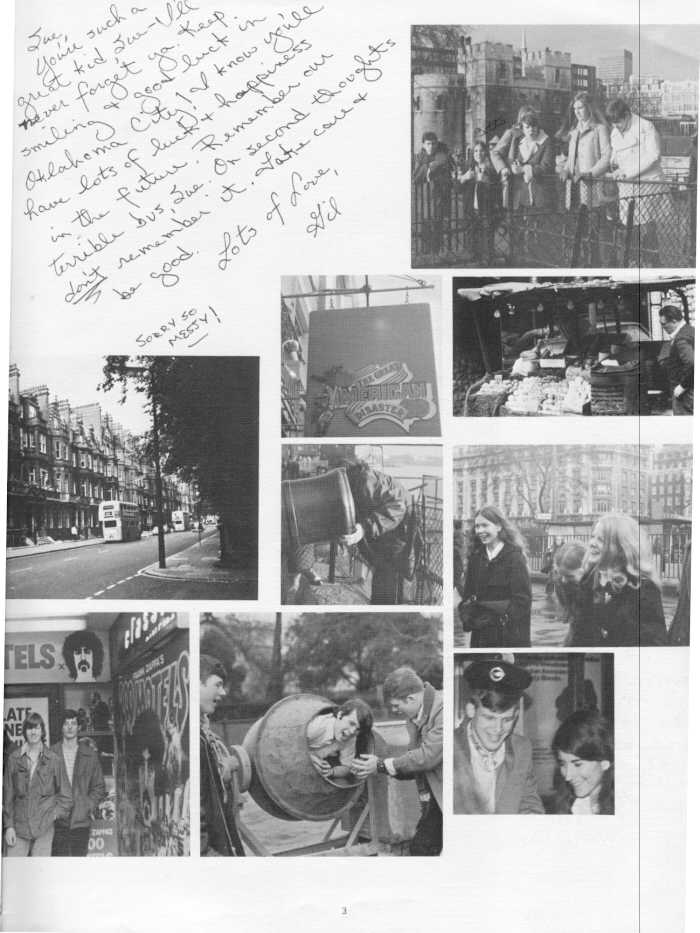 Sue,
You're such a
great kid Sue - I'll
never forget ya. Keep
smiling & good luck in
Oklahoma City! I know you'll
have lots of luck & happiness
in the future. Remember our
terrible bus Sue. On second thoughts
don't remember it. Take care &
be good. Lots of Love,
Gil
SORRY SO
MESSY!
THE GREAT
AMERICAN
DISASTER
classic
TELS
FRANK ZAPPA'S
200 MOTELS
LATE
ZAPPA
00
3